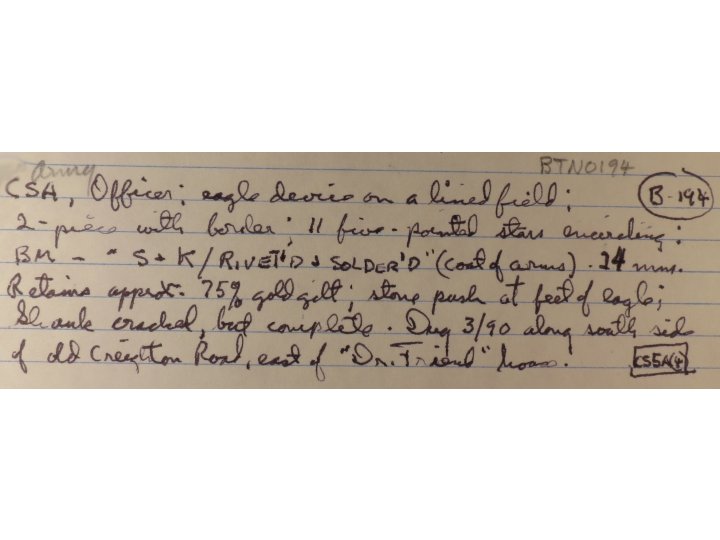 army BTN0194
CSA, Officer; eagle device on a lined field; B-194
2-piece with border; 11 five-pointed stars encircling;
BM - "S + K / RIVET'D & SOLDER'D" (coat of arms). 24 mm.
Retains approx. 75% gold gilt; stone push at feet of eagle;
Shank cracked, but complete. Dug 3/90 along south side
of old Creighton Road, east of "Dr. Friend" house. CS5A(4)